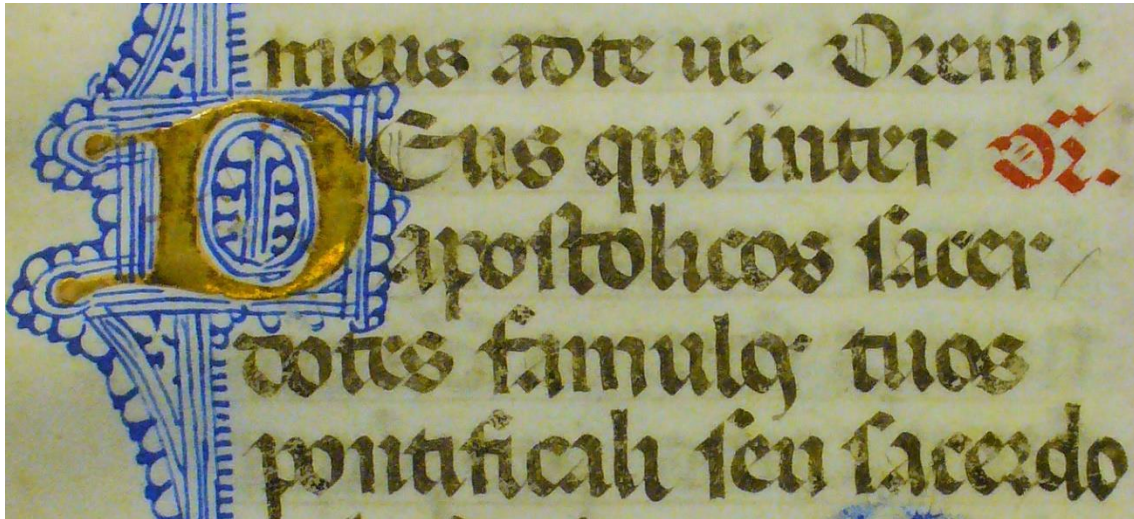 meus ad te ue. Oremꝰ.
DEus qui inter Or̃.
apostolicos sacer
dotes famulos tuos
pontificali seu sacerdo